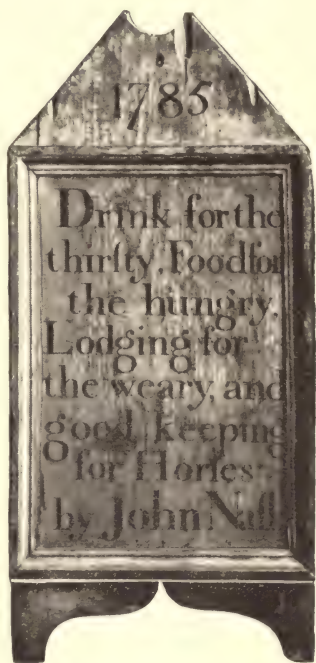 1785
Drink for the
thirſty, Food for
the hungry,
Lodging for
the weary, and
good keeping
for Horſes
by John Naſh